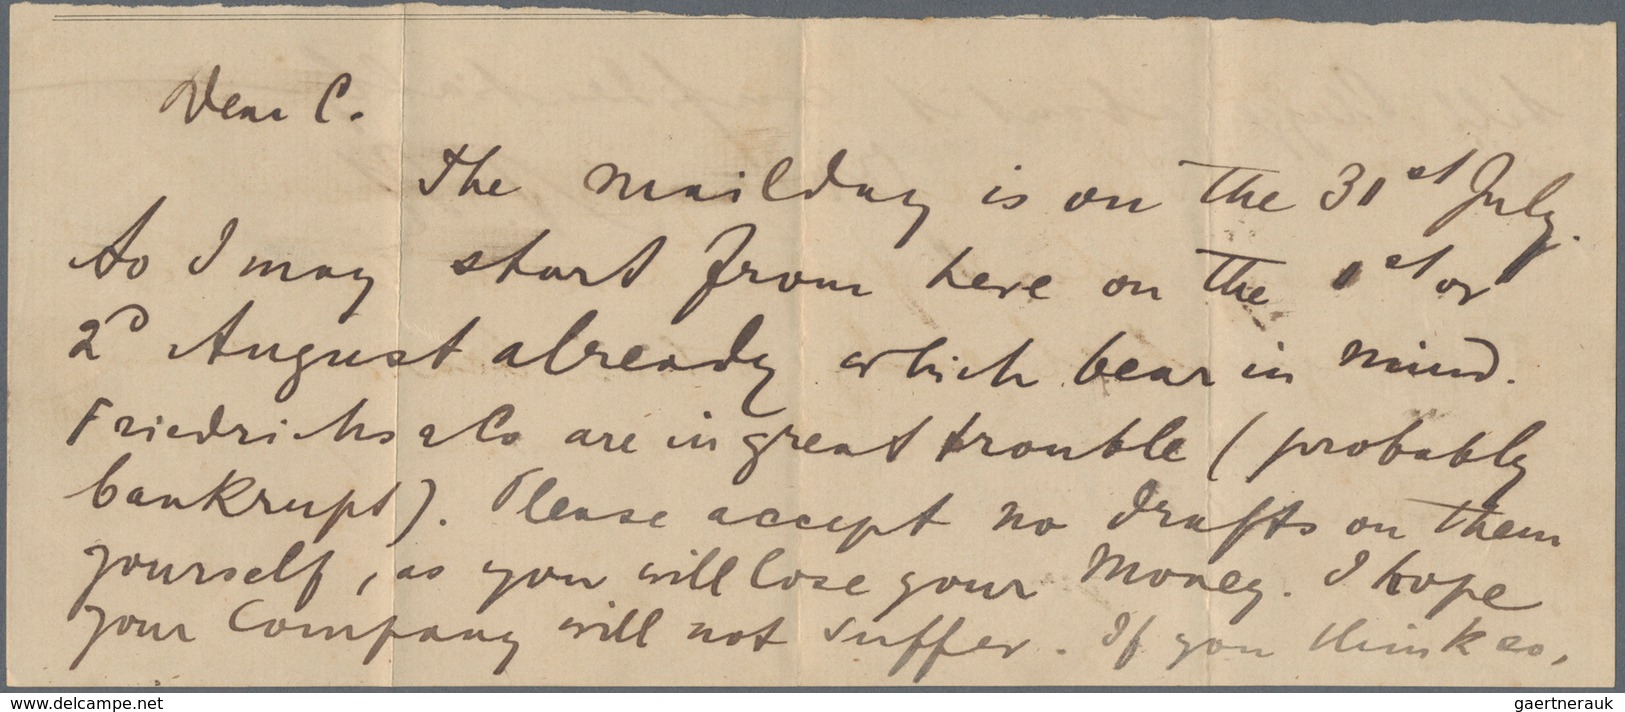 Dear C.
The mailday is on the 31st July.
So I may start from here on the 1st or
2d August already which bear in mind.
Friedrichs & Co are in great trouble (probably
bankrupt). Please accept no drafts on them
yourself, as you will lose your Money. I hope
your Company will not suffer. If you think so,
www.delcampe.net
gaertnerauk